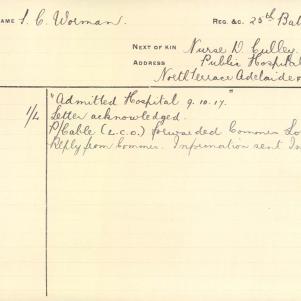 NAME I. C. Worman. REG. &C. 25th Bat
NEXT OF KIN Nurse D. Culley.
ADDRESS Public Hospital
North Terrace Adelaide
"Admitted Hospital 9.10.17."
1/4 Letter acknowledged.
P/Cable (L.C.O.) forwarded Commer Lo
Reply from Commer. Information sent In